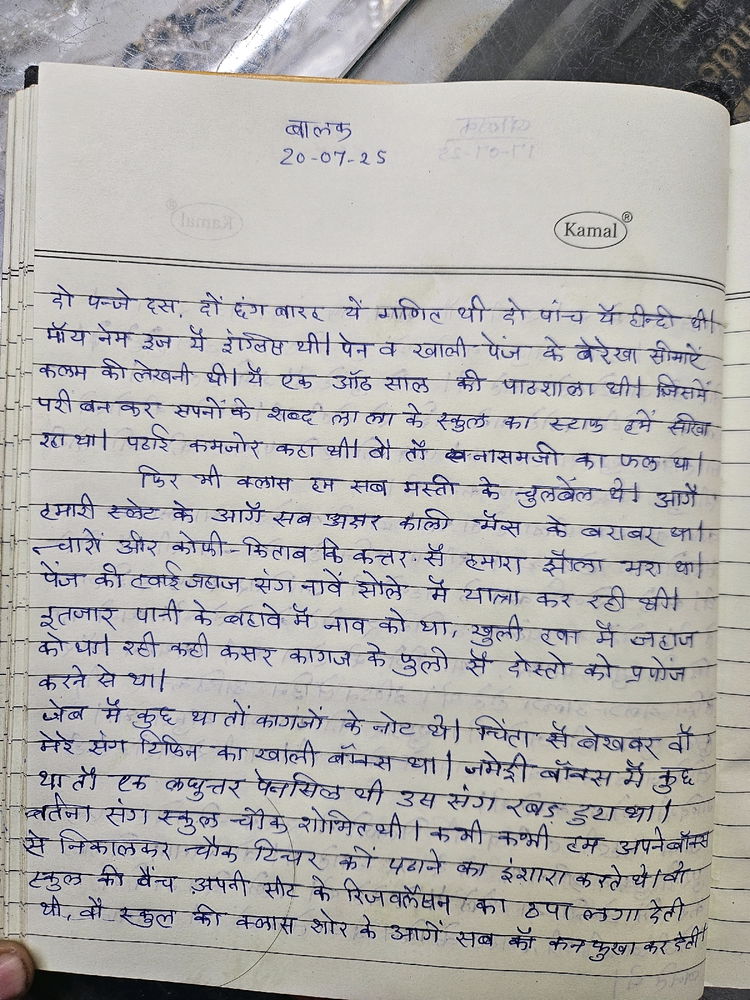 बालक
20-07-25
Kamal
दो पन्जे दस, दों छंग बारह यें गणित थी दो पांच यै हीन्दी थी।
मॉय नेम इज यै इंग्लिष थी। पेन व खाली पेज के बेरेखा सीमाऐं
कलम की लेखनी थी। यै एक ऑठ साल की पाठशाला थी। जिसमें
परी बन कर सपनों के शब्द ला ला के स्कुल का स्टाफ हमें सीखा
रहा था। पढाई कमजोर कहा थी। वो तौ नासमजी का फल था।
फिर भी क्लास हम सब मस्ती के चुलबेंल थे। आगै
हमारी स्लेट के आगै सब अक्षर काली भैंस के बराबर था।
चारों और कोफी-किताब कि कत्तर सै हमारा झौला भरा था।
पेंज की हवाई जहाज संग नावें झोले मै यात्रा कर रही थी।
इतजार पानी के बहावे मै नाव को था, खुली हवा मै जहाज
को थी। रही कही कसर कागज के फुलो सै दोस्तो को प्रपोज
करने से था।
जेब मै कुछ था तों कागजों के नोट थे। चिंता सै बेखबर वौ
मेरे संग टिफिन का खाली बॉक्स था। जमेट्री बॉक्स मै कुछ
था तौ एक लघुत्तर पेनसिल थी उस संग रबड टुटा था।
बर्तना संग स्कुल चौक शोभित थी। कभी कभी हम अपने बॉक्स
से निकालकर चौक टिचर कों पढाने का इंशारा करते थे। वो
स्कुल की बैंच अपनी सीट के रिजवलैषन का ठपा लगा देती
थी, वौ स्कुल की क्लास शोर के आगें सब कों कनफुखा कर देती।